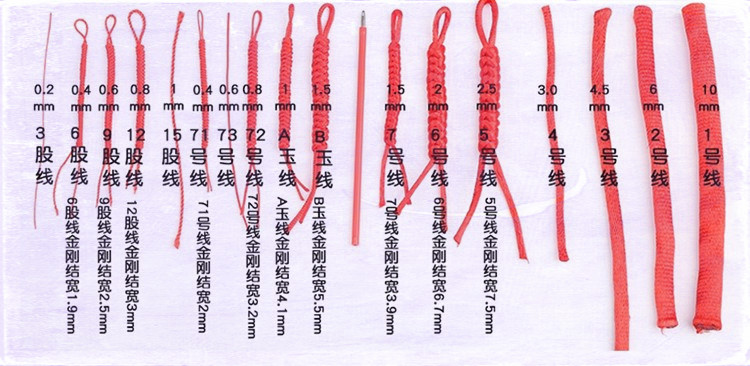 0.2 mm
3股线
0.4 mm
6股线
6股线金刚结宽1.9mm
0.6 mm
9股线
9股线金刚结宽2.5mm
0.8 mm
12股线
12股线金刚结宽3mm
1 mm
15股线
0.4 mm
71号线
71号线金刚结宽2mm
0.6 mm
73号线
0.8 mm
72号线
72号线金刚结宽3.2mm
1 mm
A玉线
A玉线金刚结宽4.1mm
1.5 mm
B玉线
B玉线金刚结宽5.5mm
1.5 mm
7号线
7号线金刚结宽3.9mm
2 mm
6号线
6号线金刚结宽6.7mm
2.5 mm
5号线
5号线金刚结宽7.5mm
3.0 mm
4号线
4.5 mm
3号线
6 mm
2号线
10 mm
1号线